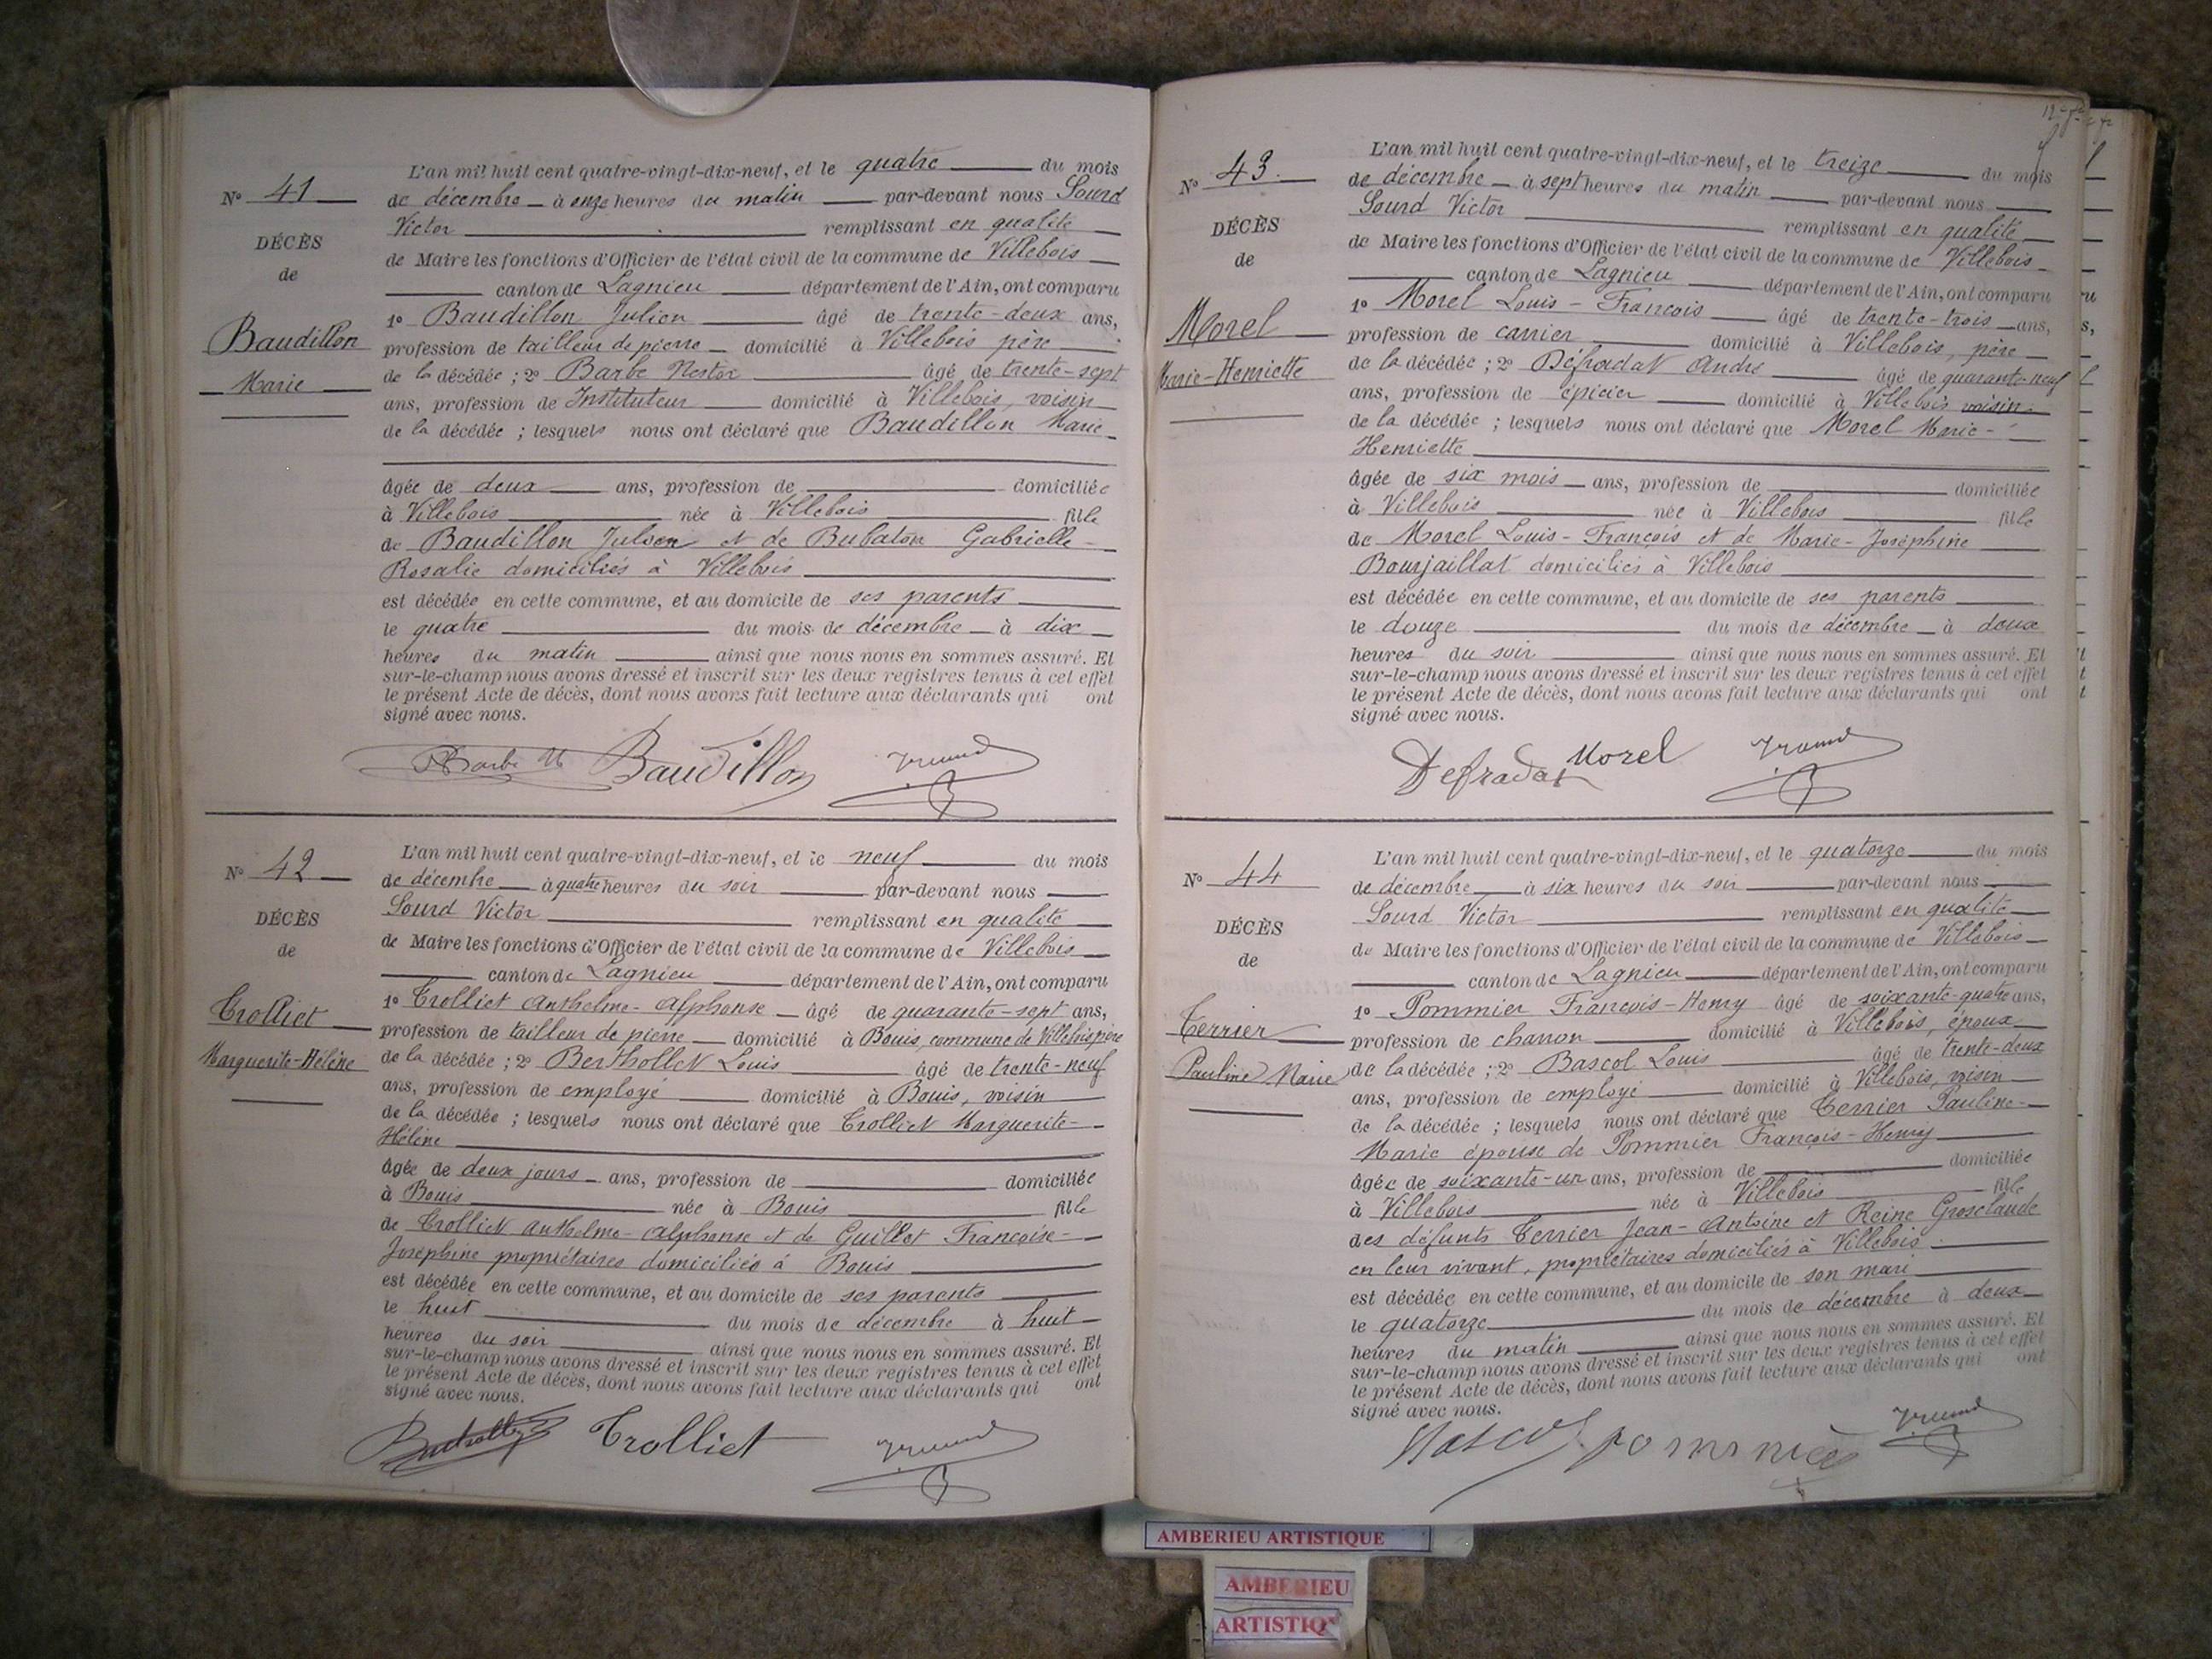 L'an mil huit cent quatre-vingt-dix-neuf, et le quatre du mois
No 41
de décembre à onze heures du matin par-devant nous Sourd
Victor remplissant en qualité
DÉCÈS
de
de Maire les fonctions d'Officier de l'état civil de la commune de Villebois
canton de Lagnieu département de l'Ain, ont comparu
1o Baudillon Julien âgé de trente-deux ans,
Baudillon
Marie
profession de tailleur de pierre domicilié à Villebois père
de la décédée ; 2o Barbe Nestor âgé de trente-sept
ans, profession de Instituteur domicilié à Villebois, voisin
de la décédée ; lesquels nous ont déclaré que Baudillon Marie
âgée de deux ans, profession de domiciliée
à Villebois née à Villebois fille
de Baudillon Julien et de Bubaton Gabrielle
Rosalie domiciliés à Villebois
est décédée en cette commune, et au domicile de ses parents
le quatre du mois de décembre à dix
heures du matin ainsi que nous nous en sommes assuré. Et
sur-le-champ nous avons dressé et inscrit sur les deux registres tenus à cet effet
le présent Acte de décès, dont nous avons fait lecture aux déclarants qui ont
signé avec nous.
Barbe N Baudillon
L'an mil huit cent quatre-vingt-dix-neuf, et le neuf du mois
No 42
de décembre à quatre heures du soir par-devant nous
Sourd Victor remplissant en qualité
DÉCÈS
de
de Maire les fonctions d'Officier de l'état civil de la commune de Villebois
canton de Lagnieu département de l'Ain, ont comparu
1o Trolliet Anthelme-Alphonse âgé de quarante-sept ans,
Trolliet
Marguerite-Hélène
profession de tailleur de pierre domicilié à Bouis, commune de Villebois père
de la décédée ; 2o Berthollet Louis âgé de trente-neuf
ans, profession de employé domicilié à Bouis, voisin
de la décédée ; lesquels nous ont déclaré que Trolliet Marguerite-
Hélène
âgée de deux jours ans, profession de domiciliée
à Bouis née à Bouis fille
de Trolliet Anthelme-Alphonse et de Guillot Françoise-
Joséphine propriétaires domiciliés à Bouis
est décédée en cette commune, et au domicile de ses parents
le huit du mois de décembre à huit
heures du soir ainsi que nous nous en sommes assuré. Et
sur-le-champ nous avons dressé et inscrit sur les deux registres tenus à cet effet
le présent Acte de décès, dont nous avons fait lecture aux déclarants qui ont
signé avec nous.
Trolliet
L'an mil huit cent quatre-vingt-dix-neuf, et le treize du mois
No 43
de décembre à sept heures du matin par-devant nous
Sourd Victor remplissant en qualité
DÉCÈS
de
de Maire les fonctions d'Officier de l'état civil de la commune de Villebois
canton de Lagnieu département de l'Ain, ont comparu
1o Morel Louis-François âgé de trente-trois ans,
Morel
Marie-Henriette
profession de carrier domicilié à Villebois, père
de la décédée ; 2o Défradat André âgé de quarante-neuf
ans, profession de épicier domicilié à Villebois voisin
de la décédée ; lesquels nous ont déclaré que Morel Marie-
Henriette
âgée de six mois ans, profession de domiciliée
à Villebois née à Villebois fille
de Morel Louis-François et de Marie-Joséphine
Bourjaillat domiciliés à Villebois
est décédée en cette commune, et au domicile de ses parents
le douze du mois de décembre à deux
heures du soir ainsi que nous nous en sommes assuré. Et
sur-le-champ nous avons dressé et inscrit sur les deux registres tenus à cet effet
le présent Acte de décès, dont nous avons fait lecture aux déclarants qui ont
signé avec nous.
Defradat Morel
L'an mil huit cent quatre-vingt-dix-neuf, et le quatorze du mois
No 44
de décembre à six heures du soir par-devant nous
Sourd Victor remplissant en qualité
DÉCÈS
de
de Maire les fonctions d'Officier de l'état civil de la commune de Villebois
canton de Lagnieu département de l'Ain, ont comparu
1o Pommier François-Henry âgé de soixante-quatre ans,
Terrier
Pauline Marie
profession de charron domicilié à Villebois, époux
de la décédée ; 2o Bascol Louis âgé de trente-deux
ans, profession de employé domicilié à Villebois, voisin
de la décédée ; lesquels nous ont déclaré que Terrier Pauline-
Marie épouse de Pommier François-Henry
âgée de soixante-un ans, profession de domiciliée
à Villebois née à Villebois fille
des défunts Terrier Jean-Antoine et Reine Grosclaude
en leur vivant, propriétaires domiciliés à Villebois
est décédée en cette commune, et au domicile de son mari
le quatorze du mois de décembre à deux
heures du matin ainsi que nous nous en sommes assuré. Et
sur-le-champ nous avons dressé et inscrit sur les deux registres tenus à cet effet
le présent Acte de décès, dont nous avons fait lecture aux déclarants qui ont
signé avec nous.
Bascol pommier
AMBERIEU ARTISTIQUE
AMBERIEU
ARTISTIQ